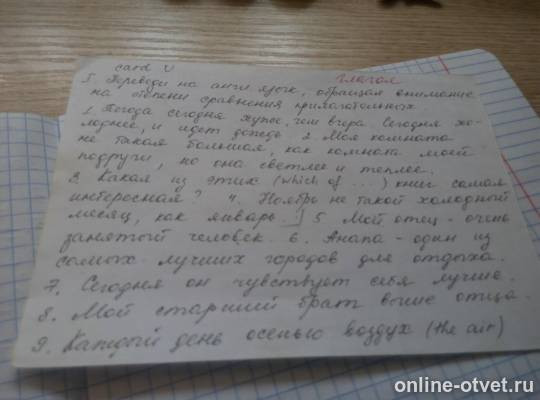 card V
глагол
I. Переведи на англ язык, обращая внимание
на степени сравнения прилагательных
1. Погода сегодня хуже, чем вчера. Сегодня хо-
лоднее, и идет дождь 2. Моя комната
не такая большая, как комната моей
подруги, но она светлее и теплее.
3. Какая из этих (which of ...) книг самая
интересная? 4. Ноябрь не такой холодный
месяц, как январь. 5 Мой отец - очень
занятый человек. 6. Анапа - один из
самых лучших городов для отдыха.
7. Сегодня он чувствует себя лучше.
8. Мой старший брат выше отца.
9. Каждый день осенью воздух (the air)
online-otvet.ru